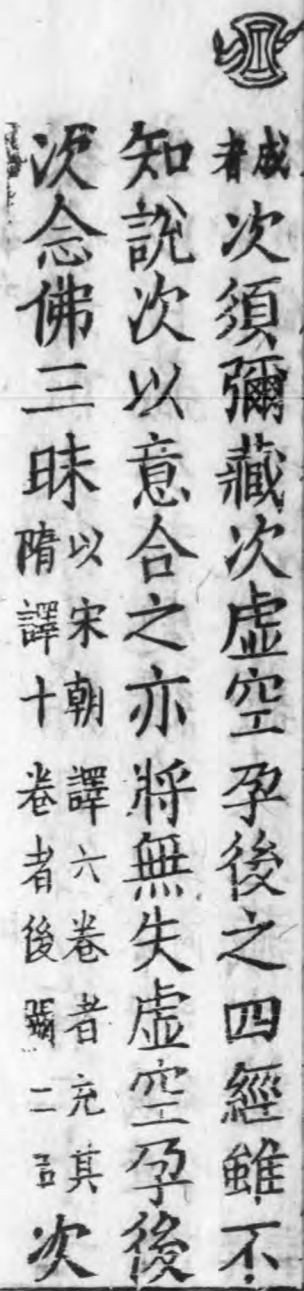 成者次須彌藏次虛空孕後之四經雖不
知說次以意合之亦將無失虛空孕後
次念佛三昧以宋朝譯六卷者充其隋譯十卷者後二次